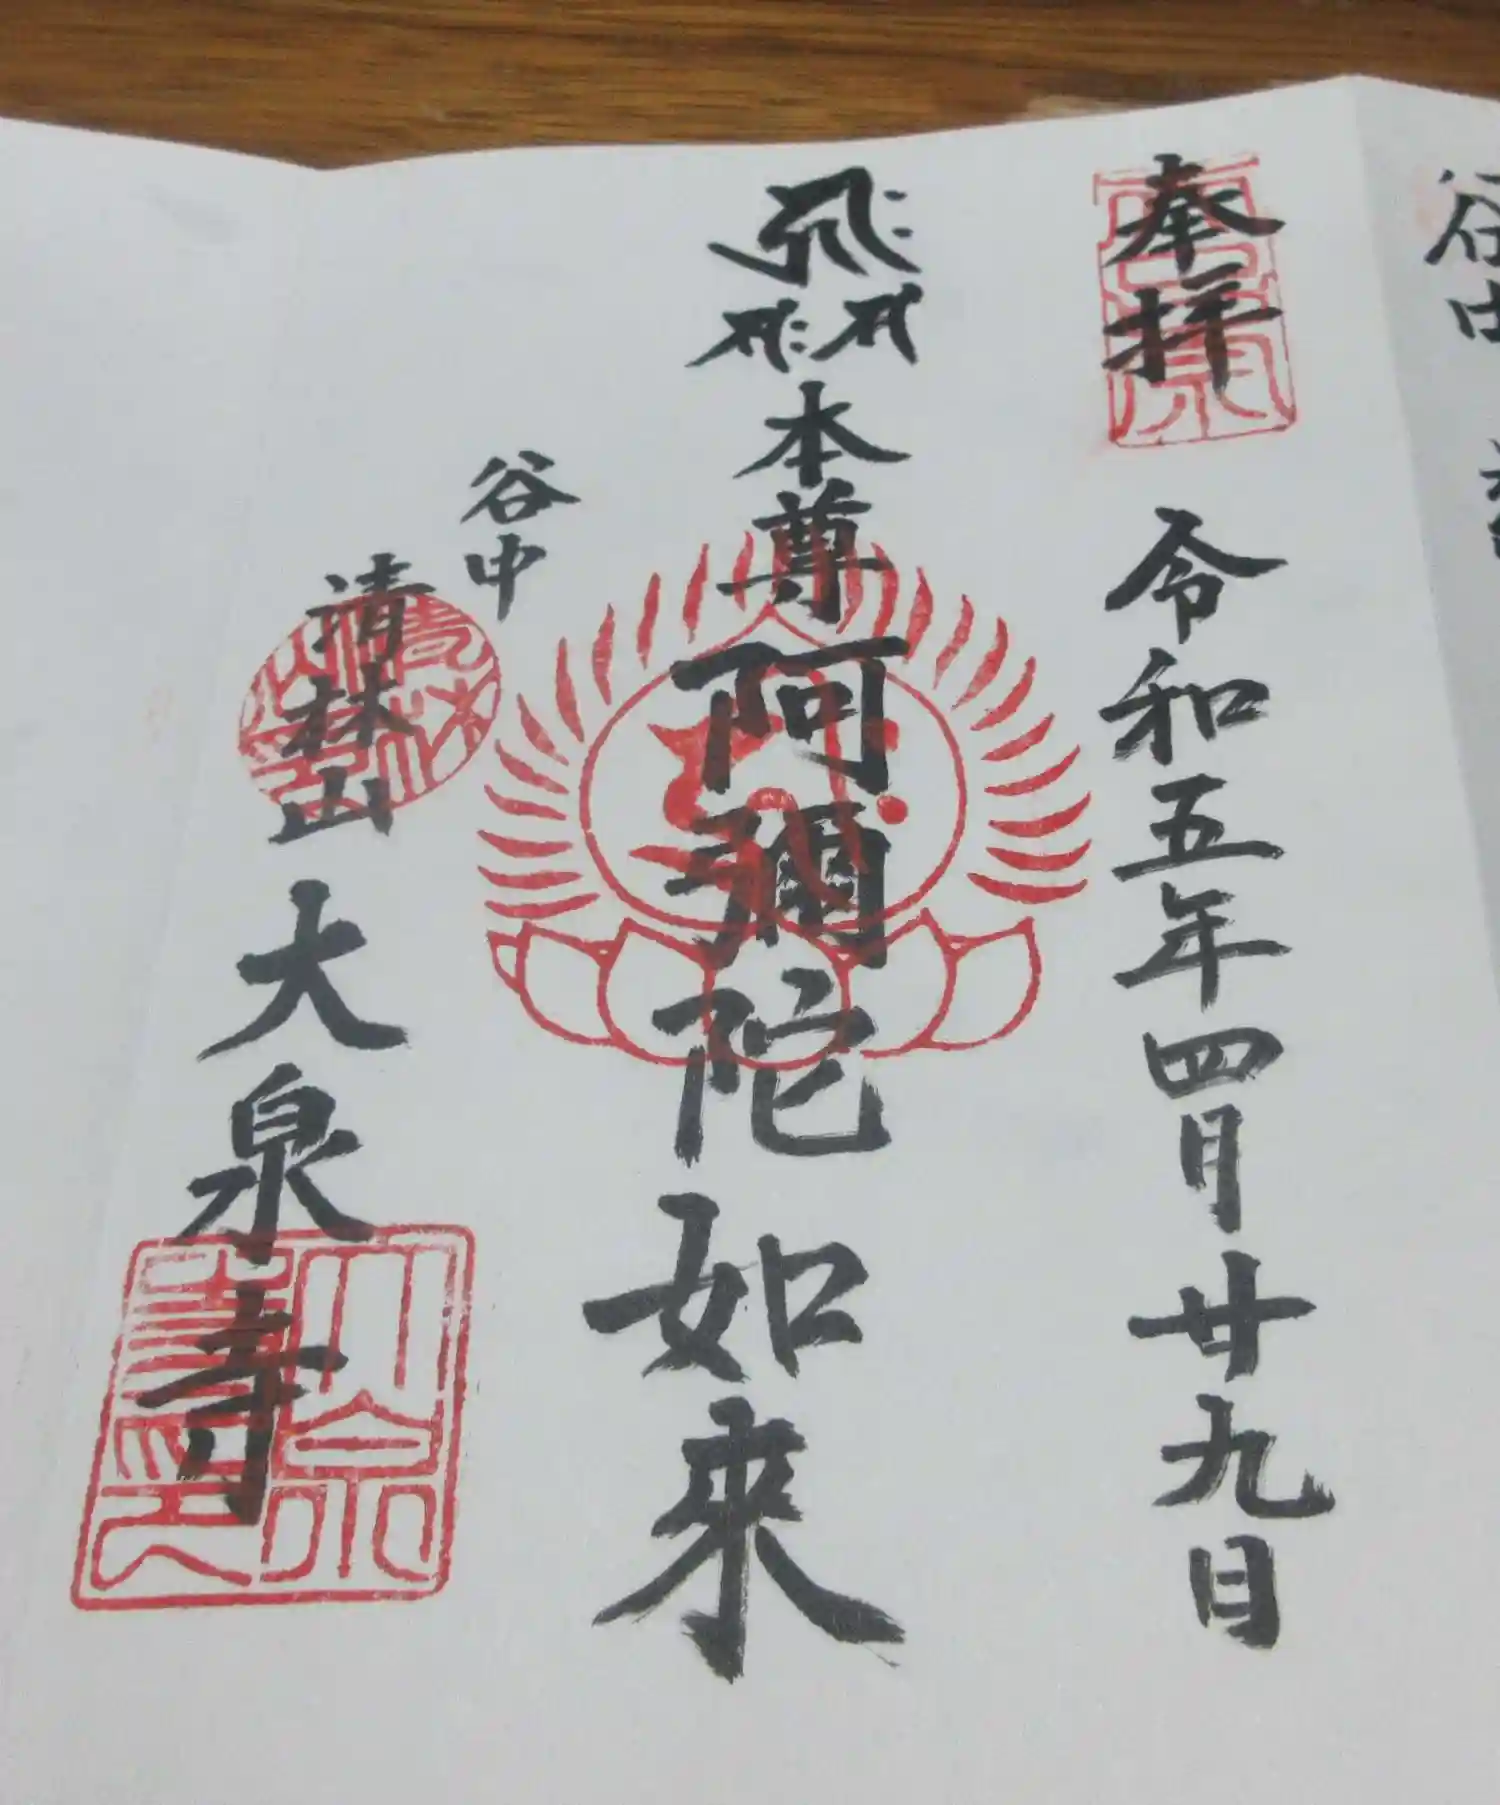 谷中
奉拝
令和五年四月廿九日
本尊阿彌陀如來
谷中
清林山
大泉寺